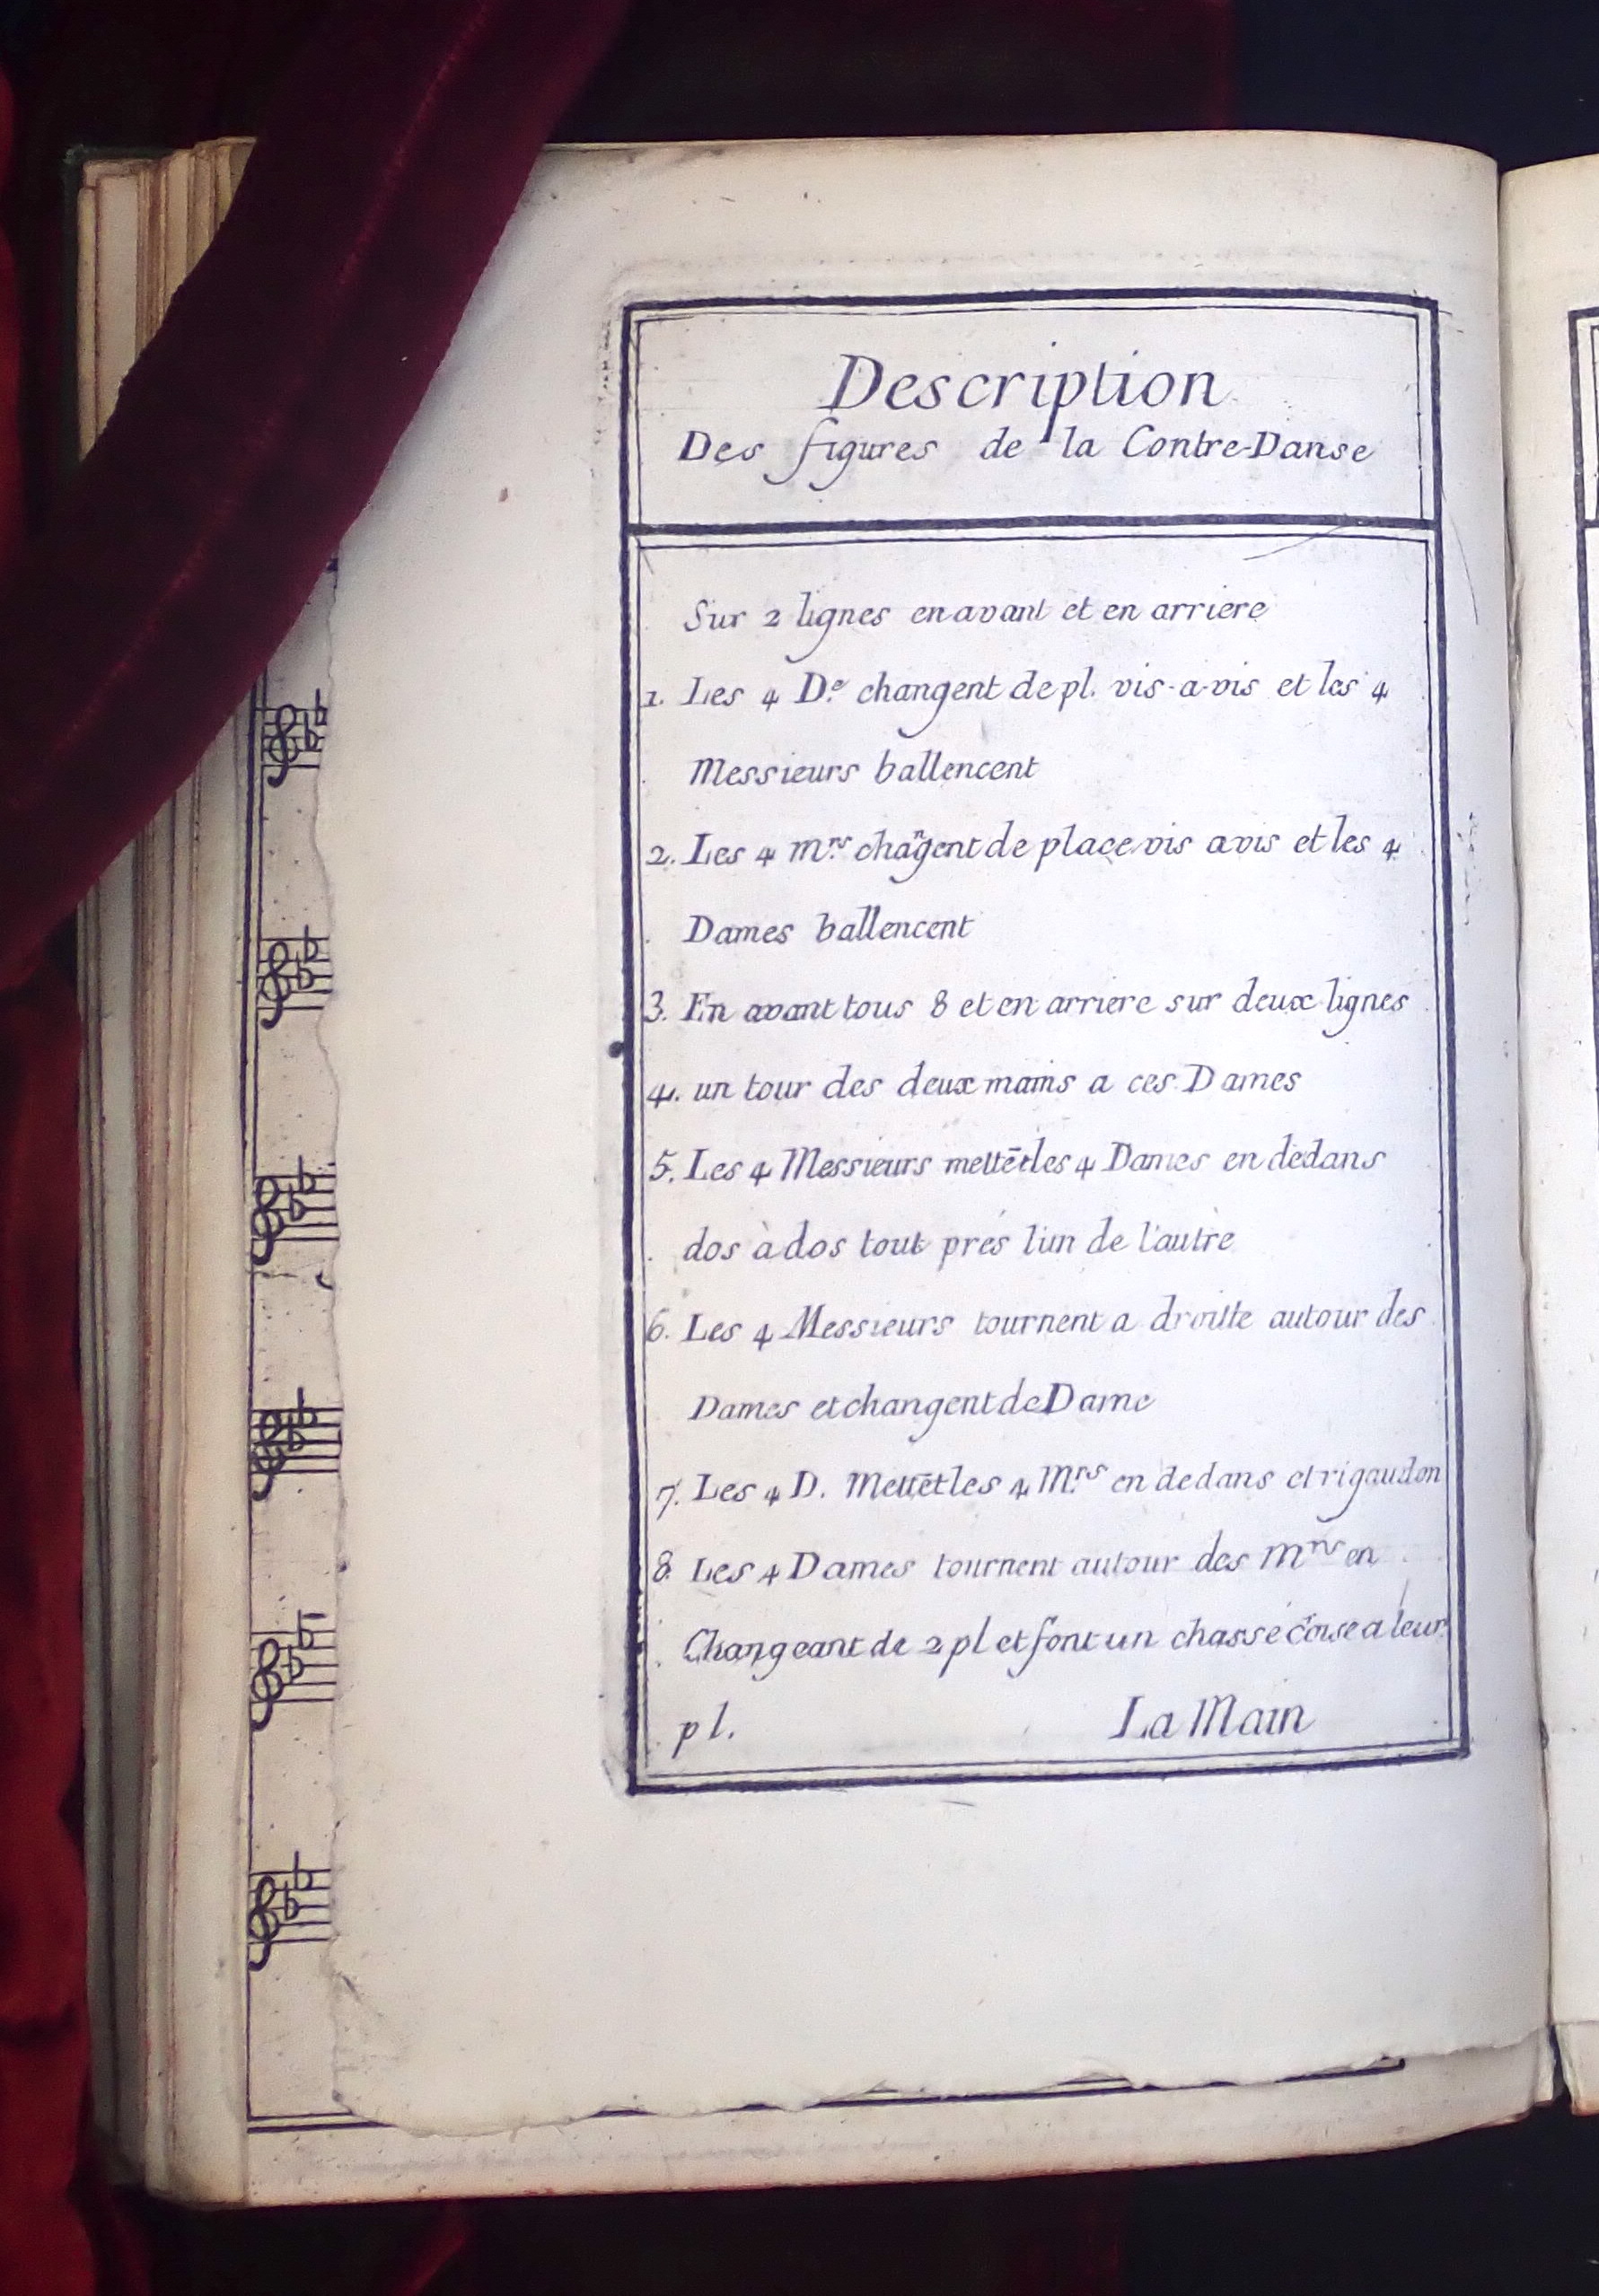 Description
Des figures de la Contre-Danse
Sur 2 lignes en avant et en arriere
1. Les 4 D.e changent de pl. vis-a-vis et les 4
Messieurs ballencent
2. Les 4 m.rs chãgent de place vis a vis et les 4
Dames ballencent
3. En avant tous 8 et en arriere sur deux lignes
4. un tour des deux mains a ces Dames
5. Les 4 Messieurs mettẽt les 4 Dames en dedans
dos à dos tout prés l'un de l'autre
6. Les 4 Messieurs tournent a droitte autour des
Dames et changent de Dame
7. Les 4 D. Mettẽt les 4 M.rs en dedans et rigaudon
8. Les 4 Dames tournent autour des Mrs en
Changeant de 2 pl et font un chassé a leur
pl. La Main